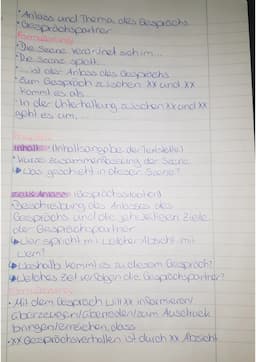 • Anlass und Thema des Gesprächs
• Gesprächspartner
Formulierung
• Die Szene
• Die Szene spielt...
• ... ist der Anlass des Gesprächs
• Zum Gespräch zwischen XX und XX
kommt es als...
• In der Unterhaltung zwischen XX und XX
geht es um....
Inhalt: (Inhaltsangabe der Textstelle)
• Kurze Zusammenfassung der Szene
↳ Was geschieht in dieser Szene?
(Gesprächssituation)
Beschreibung des Anlasses des
Gesprächs und die jeweiligen Ziele
der Gesprächspartner
↳ Wer spricht mit welcher Absicht mit
wem?
↳ Weshalb kommt es zu diesem Gespräch?
↳ Welches Ziel verfolgen die Gesprächspartner?
• Mit dem Gespräch will XX informieren/
überzeugen/überreden/zum Ausdruck
bringen/erreichen, dass
• XX Gesprächsverhalten ist durch XX Absicht